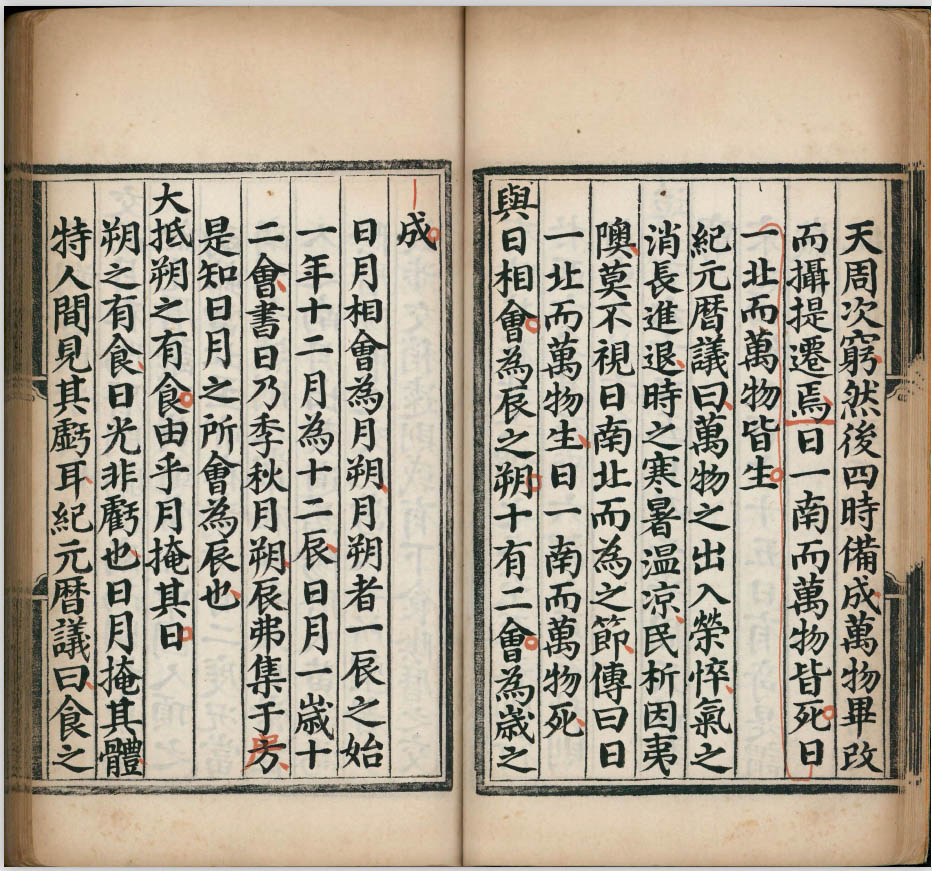 天周次窮然後四時備成萬物畢改
而攝提遷焉日一南而萬物皆死日
一北而萬物皆生
紀元暦議曰萬物之出入榮悴氣之
消長進退時之寒暑温凉民析因夷
隩莫不視日南北而為之節傳曰日
一北而萬物生日一南而萬物死
與日相會為辰之朔十有二會為歲之
成
日月相會為月朔月朔者一辰之始
一年十二月為十二辰日月一歲十
二會書曰乃季秋月朔辰弗集于房
是知日月之所會為辰也
大抵朔之有食由乎月掩其日
朔之有食日光非虧也日月掩其體
特人間見其虧耳紀元暦議曰食之